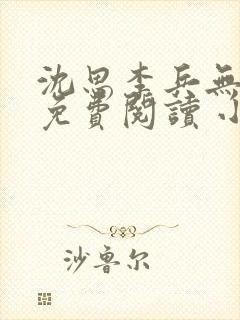 沈思李兵無
免費閱讀小
沙魯尔